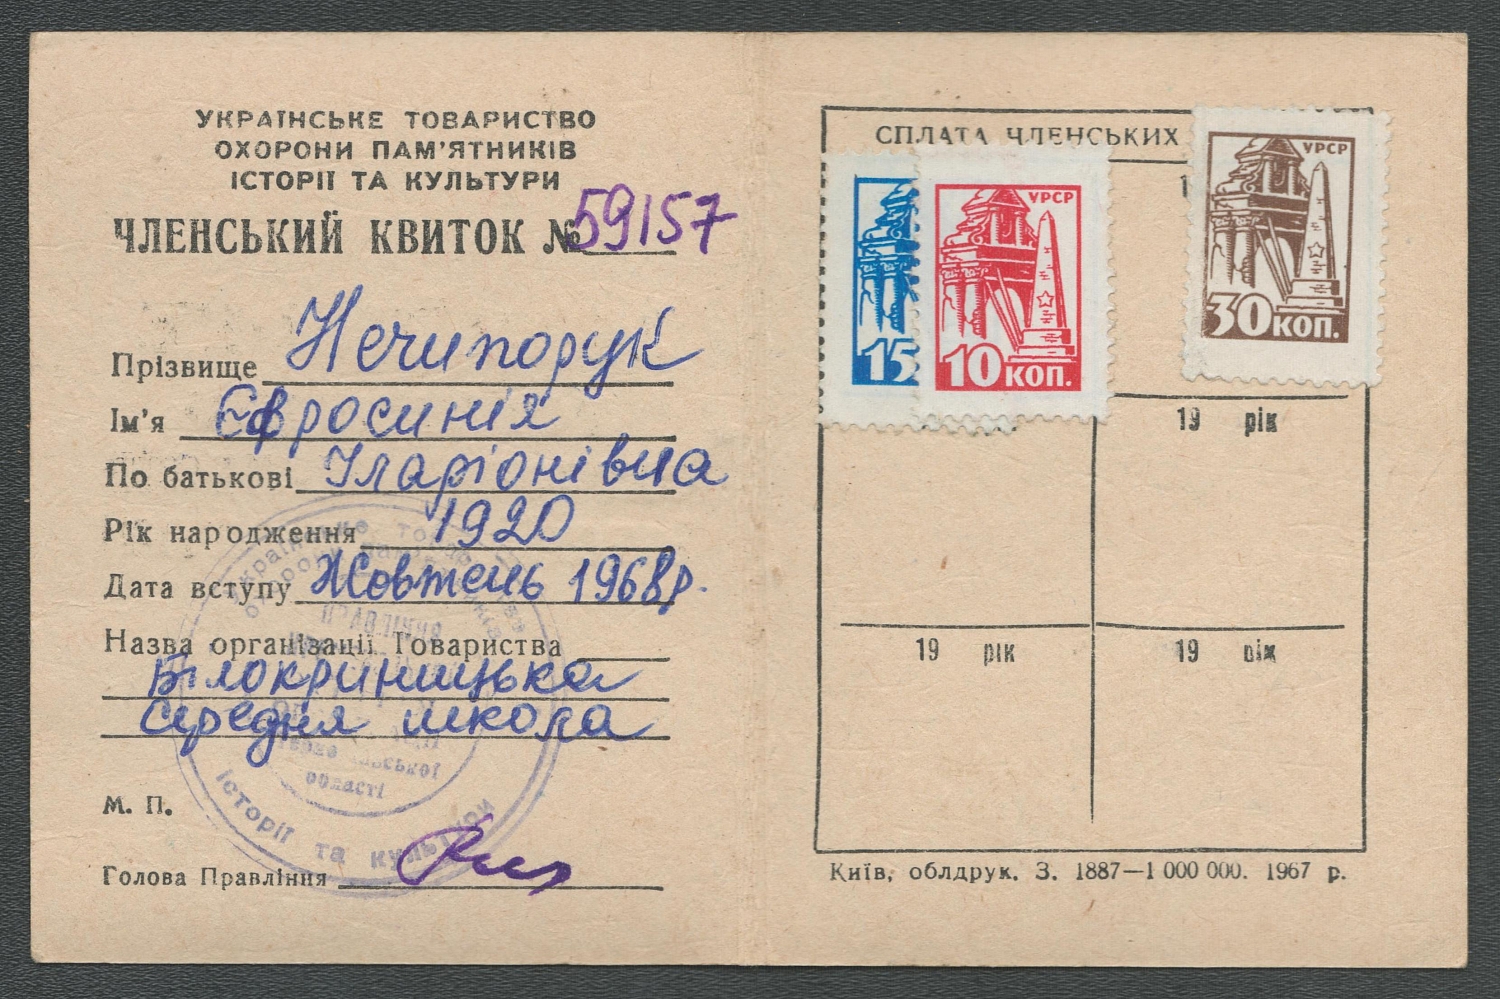 УКРАЇНСЬКЕ ТОВАРИСТВО
ОХОРОНИ ПАМ'ЯТНИКІВ
ІСТОРІЇ ТА КУЛЬТУРИ
ЧЛЕНСЬКИЙ КВИТОК № 59157
Прізвище Нечипорук
Ім'я Євросинія
По батькові Іларіонівна
Рік народження 1920
Дата вступу Жовтень 1968 р.
Назва організації Товариства
Білокриницька
середня школа
М. П.
Голова Правління
Українське товариство
охорони
ПРАВЛІННЯ
області
історії та культури
СПЛАТА ЧЛЕНСЬКИХ
15
УРСР
10 КОП.
УРСР
30 КОП.
19 рік
19 рік
19 рік
Київ, облдрук. З. 1887—1 000 000. 1967 р.